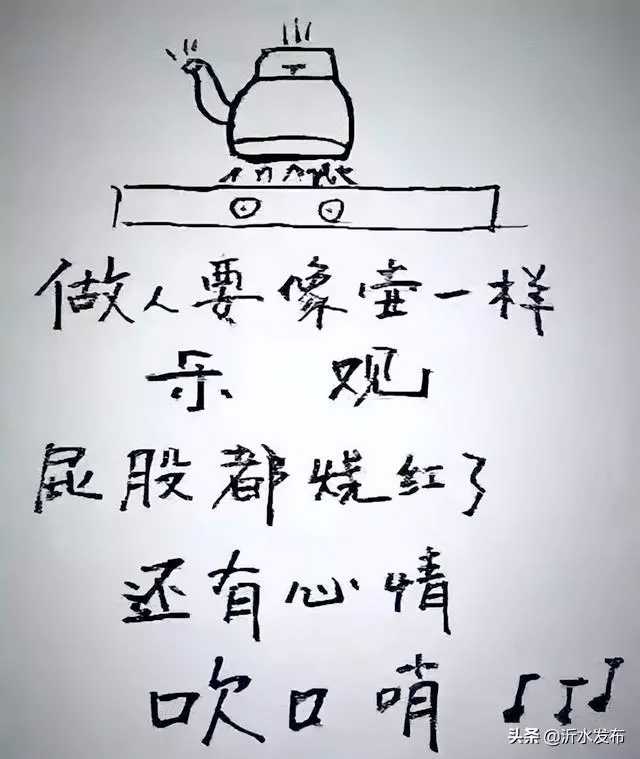 做人要像壶一样
乐 观
屁股都烧红了
还有心情
吹口哨
头条 @沂水发布